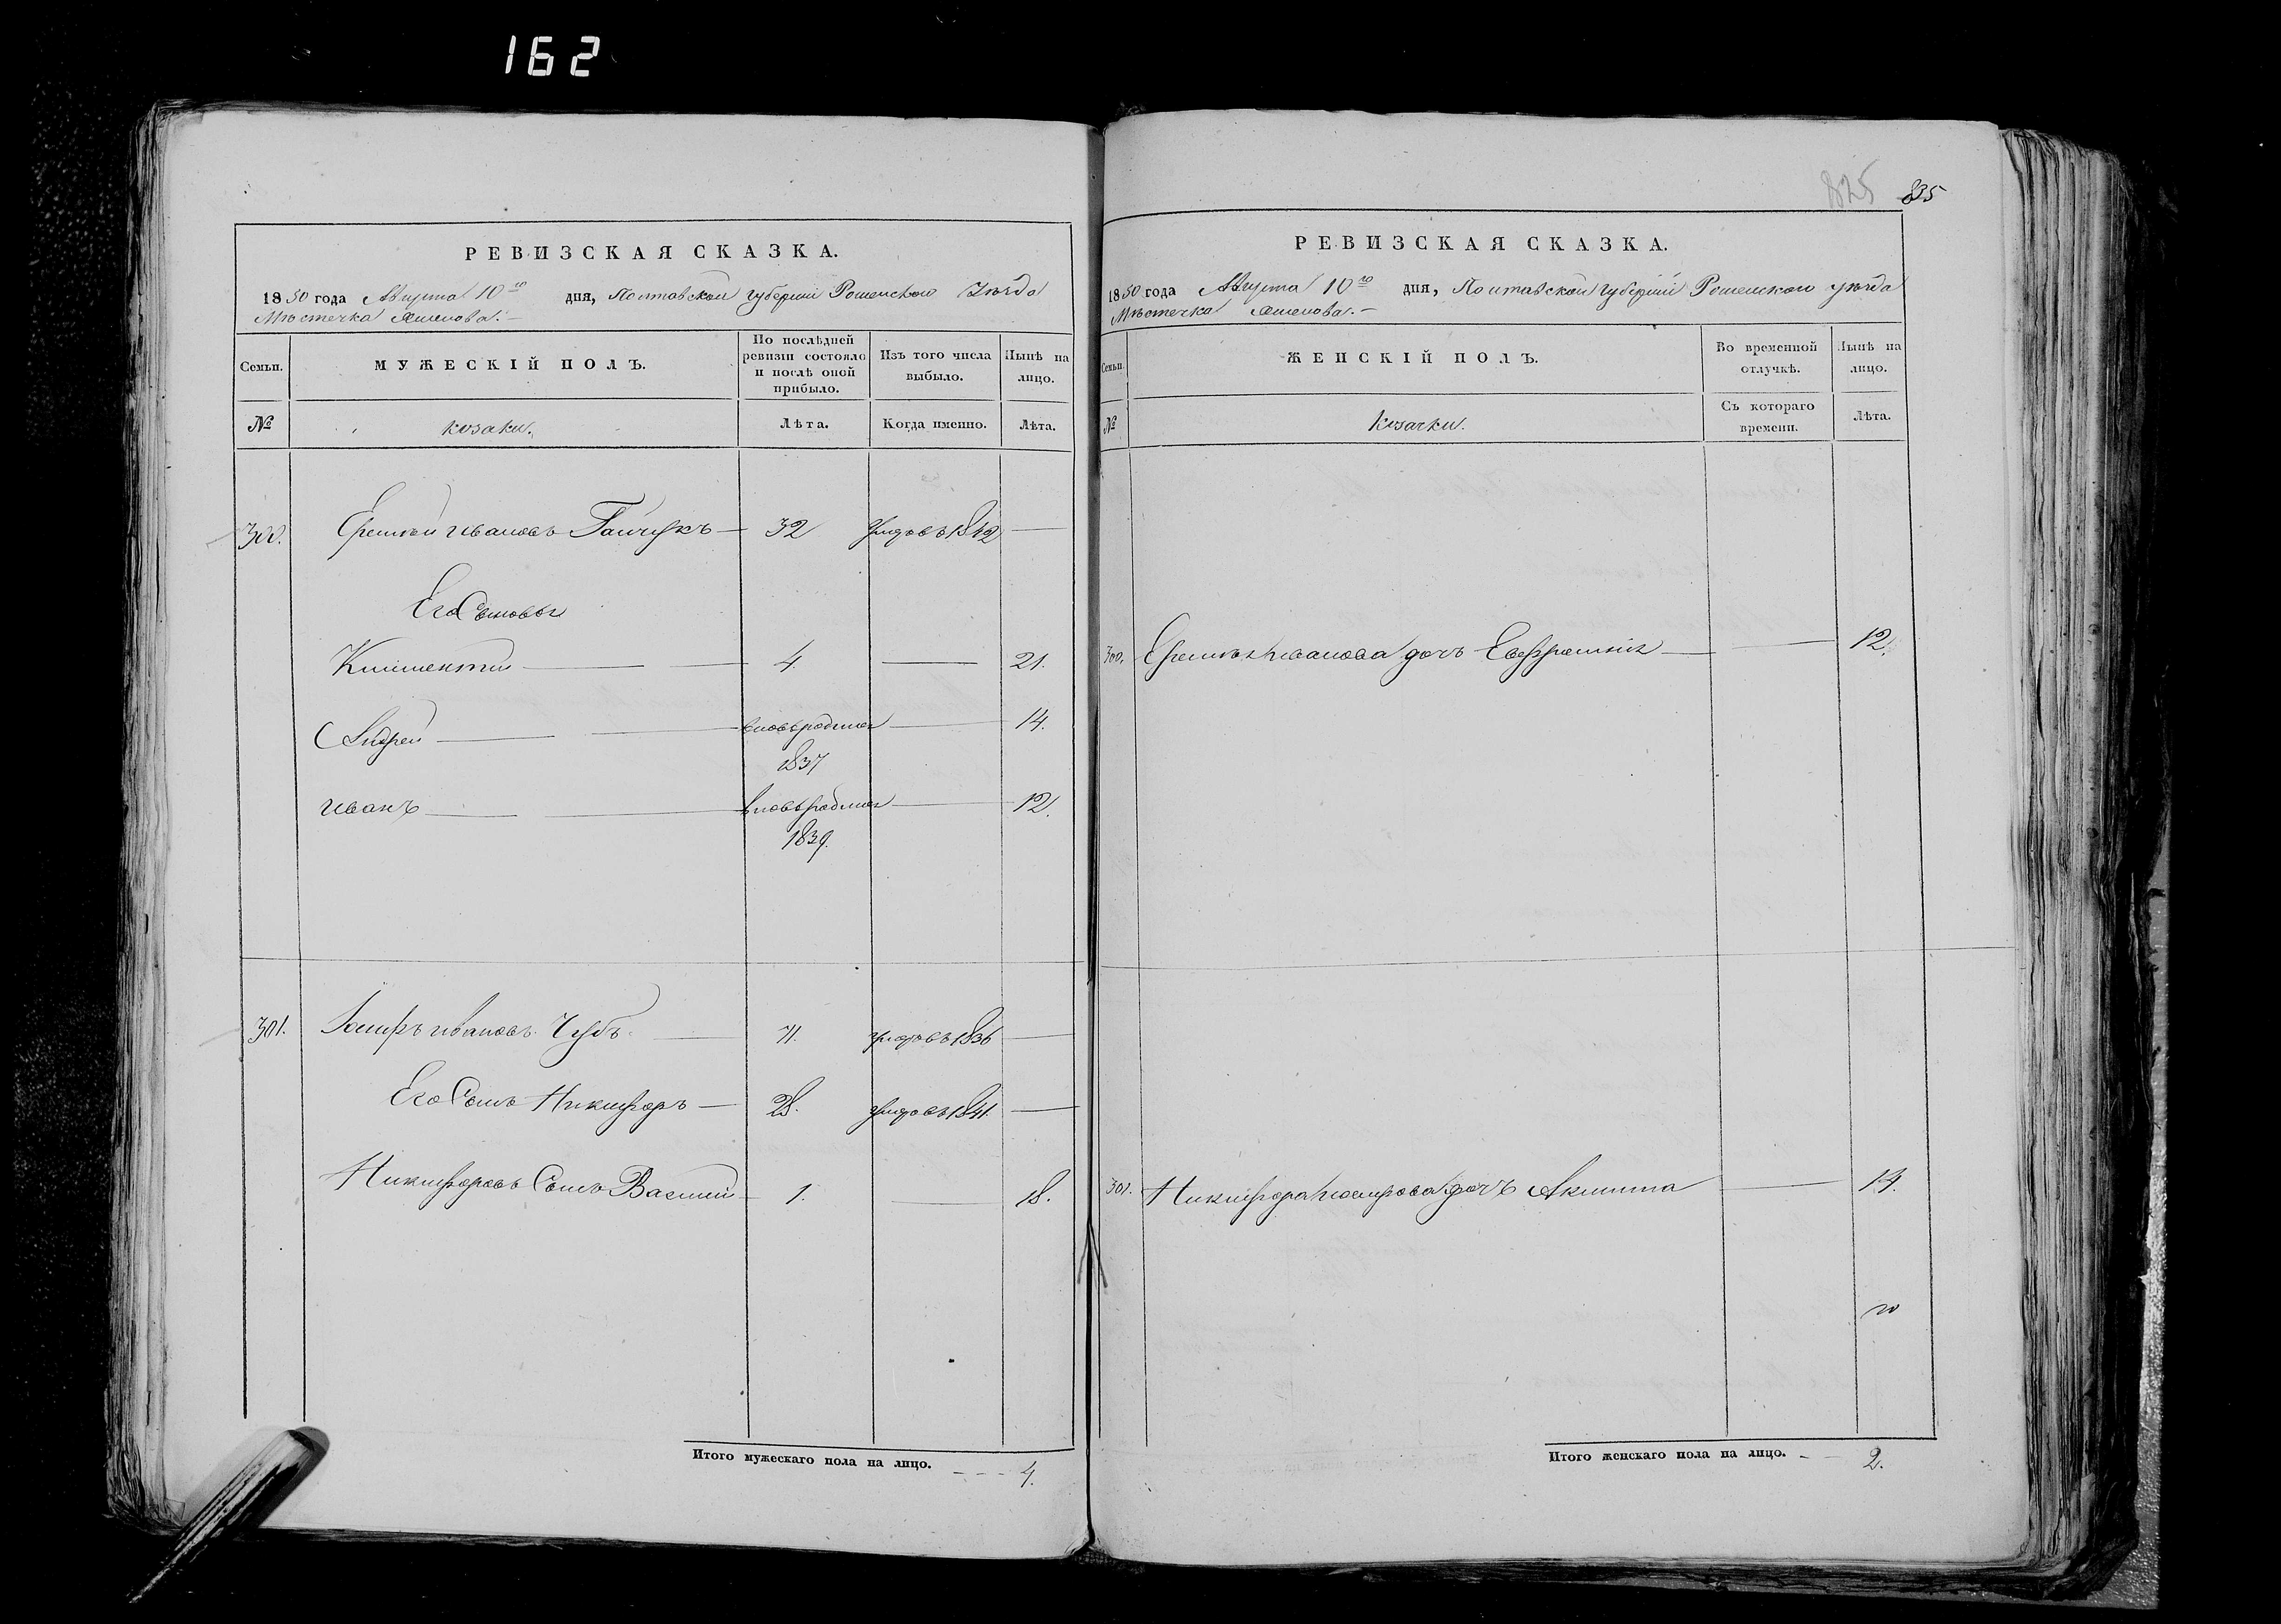 162
825 835
РЕВИЗСКАЯ СКАЗКА.
1850 года Августа 10го дня, Полтавской губернии Роменского Уѣзда
Мѣстечка
Семьи.
МУЖЕСКІЙ ПОЛЪ.
По послѣдней ревизіи состояло и послѣ оной прибыло.
Изъ того числа выбыло.
Нынѣ на лицо.
№
козаки.
Лѣта.
Когда именно.
Лѣта.
300. Еремѣй Ивановъ Гайчукъ 32 умеръ въ 1842
Его Сыновья
Климентий 4. 21.
Андрей вновьродился 14.
1837
Иванъ вновьродился 12.
1839.
301. Іосифъ Ивановъ Чубъ 71. умеръ въ 1836
Его Сынъ Никифоръ 28. умеръ въ 1841.
Никифоровъ Сынъ Василий 1. 18.
Итого мужескаго пола на лицо. 4.
РЕВИЗСКАЯ СКАЗКА.
1850 года Августа 10го дня, Полтавской губернии Роменского уѣзда
Мѣстечка
Семьи.
ЖЕНСКІЙ ПОЛЪ.
Во временной отлучкѣ.
Нынѣ на лицо.
№
козачки.
Съ котораго времени.
Лѣта.
300. Еремѣя Иванова дочь 12.
301. Никифора Іосифова дочь Акилина 14.
Итого женскаго пола на лицо. 2.